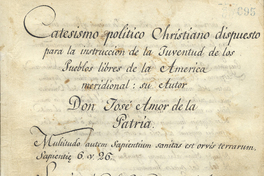 695
Catesismo politico Christiano dispuesto
para la instruccion de la Juventud de los
Pueblos libres de la America
meridional: su Autor
Don José Amor de la
Patria.
Multitudo autem Sapientium sanitas est orvis terrarum.
Sapientię 6 v. 26.